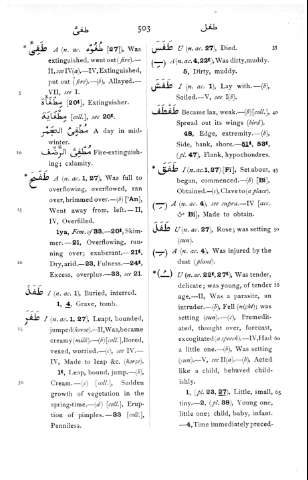 طفئ
503
طفل
طَفِئَ A (n. ac. طُفُوْء [27]), Was
extinguished, went out (fire).—
II, see IV(a).—IV, Extinguished,
put out (fire).—(b), Allayed.—
VII, see I.
مِطْفَأَة [20t], Extinguisher.
مِطْفَايَة [coll.], see 20t.
مُطْفِئُ الجَمْر A day in mid-
winter.
مُطْفِئُ الرَّضْف Fire-extinguish-
ing; calamity.
طَفَحَ A (n. ac. 1, 27), Was full to
overflowing, overflowed, ran
over, brimmed over.—(b) ['An],
Went away from, left.—II,
IV, Overfilled.
1ya, Fem. of 33.—20t, Skim-
mer.—21, Overflowing, run-
ning over; exuberant.—21t,
Dry, arid.—23, Fulness.—24t,
Excess, overplus.—33, see 21.
طَفَدَ I (n. ac. 1), Buried, interred.
1, 4, Grave, tomb.
طَفَرَ I (n. ac. 1, 27), Leapt, bounded,
jumped (horse).—II, Was, became
creamy (milk).—(b) [coll.], Bored,
vexed, worried.—(c), see IV.—
IV, Made to leap &c. (horse).
1t, Leap, bound, jump.—(b),
Cream.—(c) (coll.), Sudden
growth of vegetation in the
spring-time.—(d) (coll.), Erup-
tion of pimples.—33 (coll.),
Penniless.
طَفَسَ U (n. ac. 27), Died.
A (n. ac. 4, 22t), Was dirty, muddy.
5, Dirty, muddy.
طَفَشَ I (n. ac. 1), Lay with.—(b),
Soiled.—V, see I(b).
طَفْطَفَ Became lax, weak.—(b) [coll.],
Spread out its wings (bird).
48, Edge, extremity.—(b),
Side, bank, shore.—51t, 53t,
(pl. 47), Flank, hypochondres.
طَفِقَ I (n. ac. 1, 27) [Fi], Set about,
began, commenced.—(b) [Bi],
Obtained.—(c), Clave to (a place).
A (n. ac. 4), see supra.—IV [acc.
& Bi], Made to obtain.
طَفَلَ U (n. ac. 27), Rose; was setting
(sun).
A (n. ac. 4), Was injured by the
dust (plant).
U (n. ac. 22t, 27t), Was tender,
delicate; was young, of tender
age.—II, Was a parasite, an
intruder.—(b), Fell (night); was
setting (sun).—(c), Premedit-
ated, thought over, forecast,
excogitated (a speech).—IV, Had
a little one.—(b), Was setting
(sun).—V, see II(a).—(b), Acted
like a child, behaved child-
ishly.
1, (pl. 23, 27), Little, small,
tiny.—2, (pl. 38), Young one,
little one; child, baby, infant.
—4, Time immediately preced-